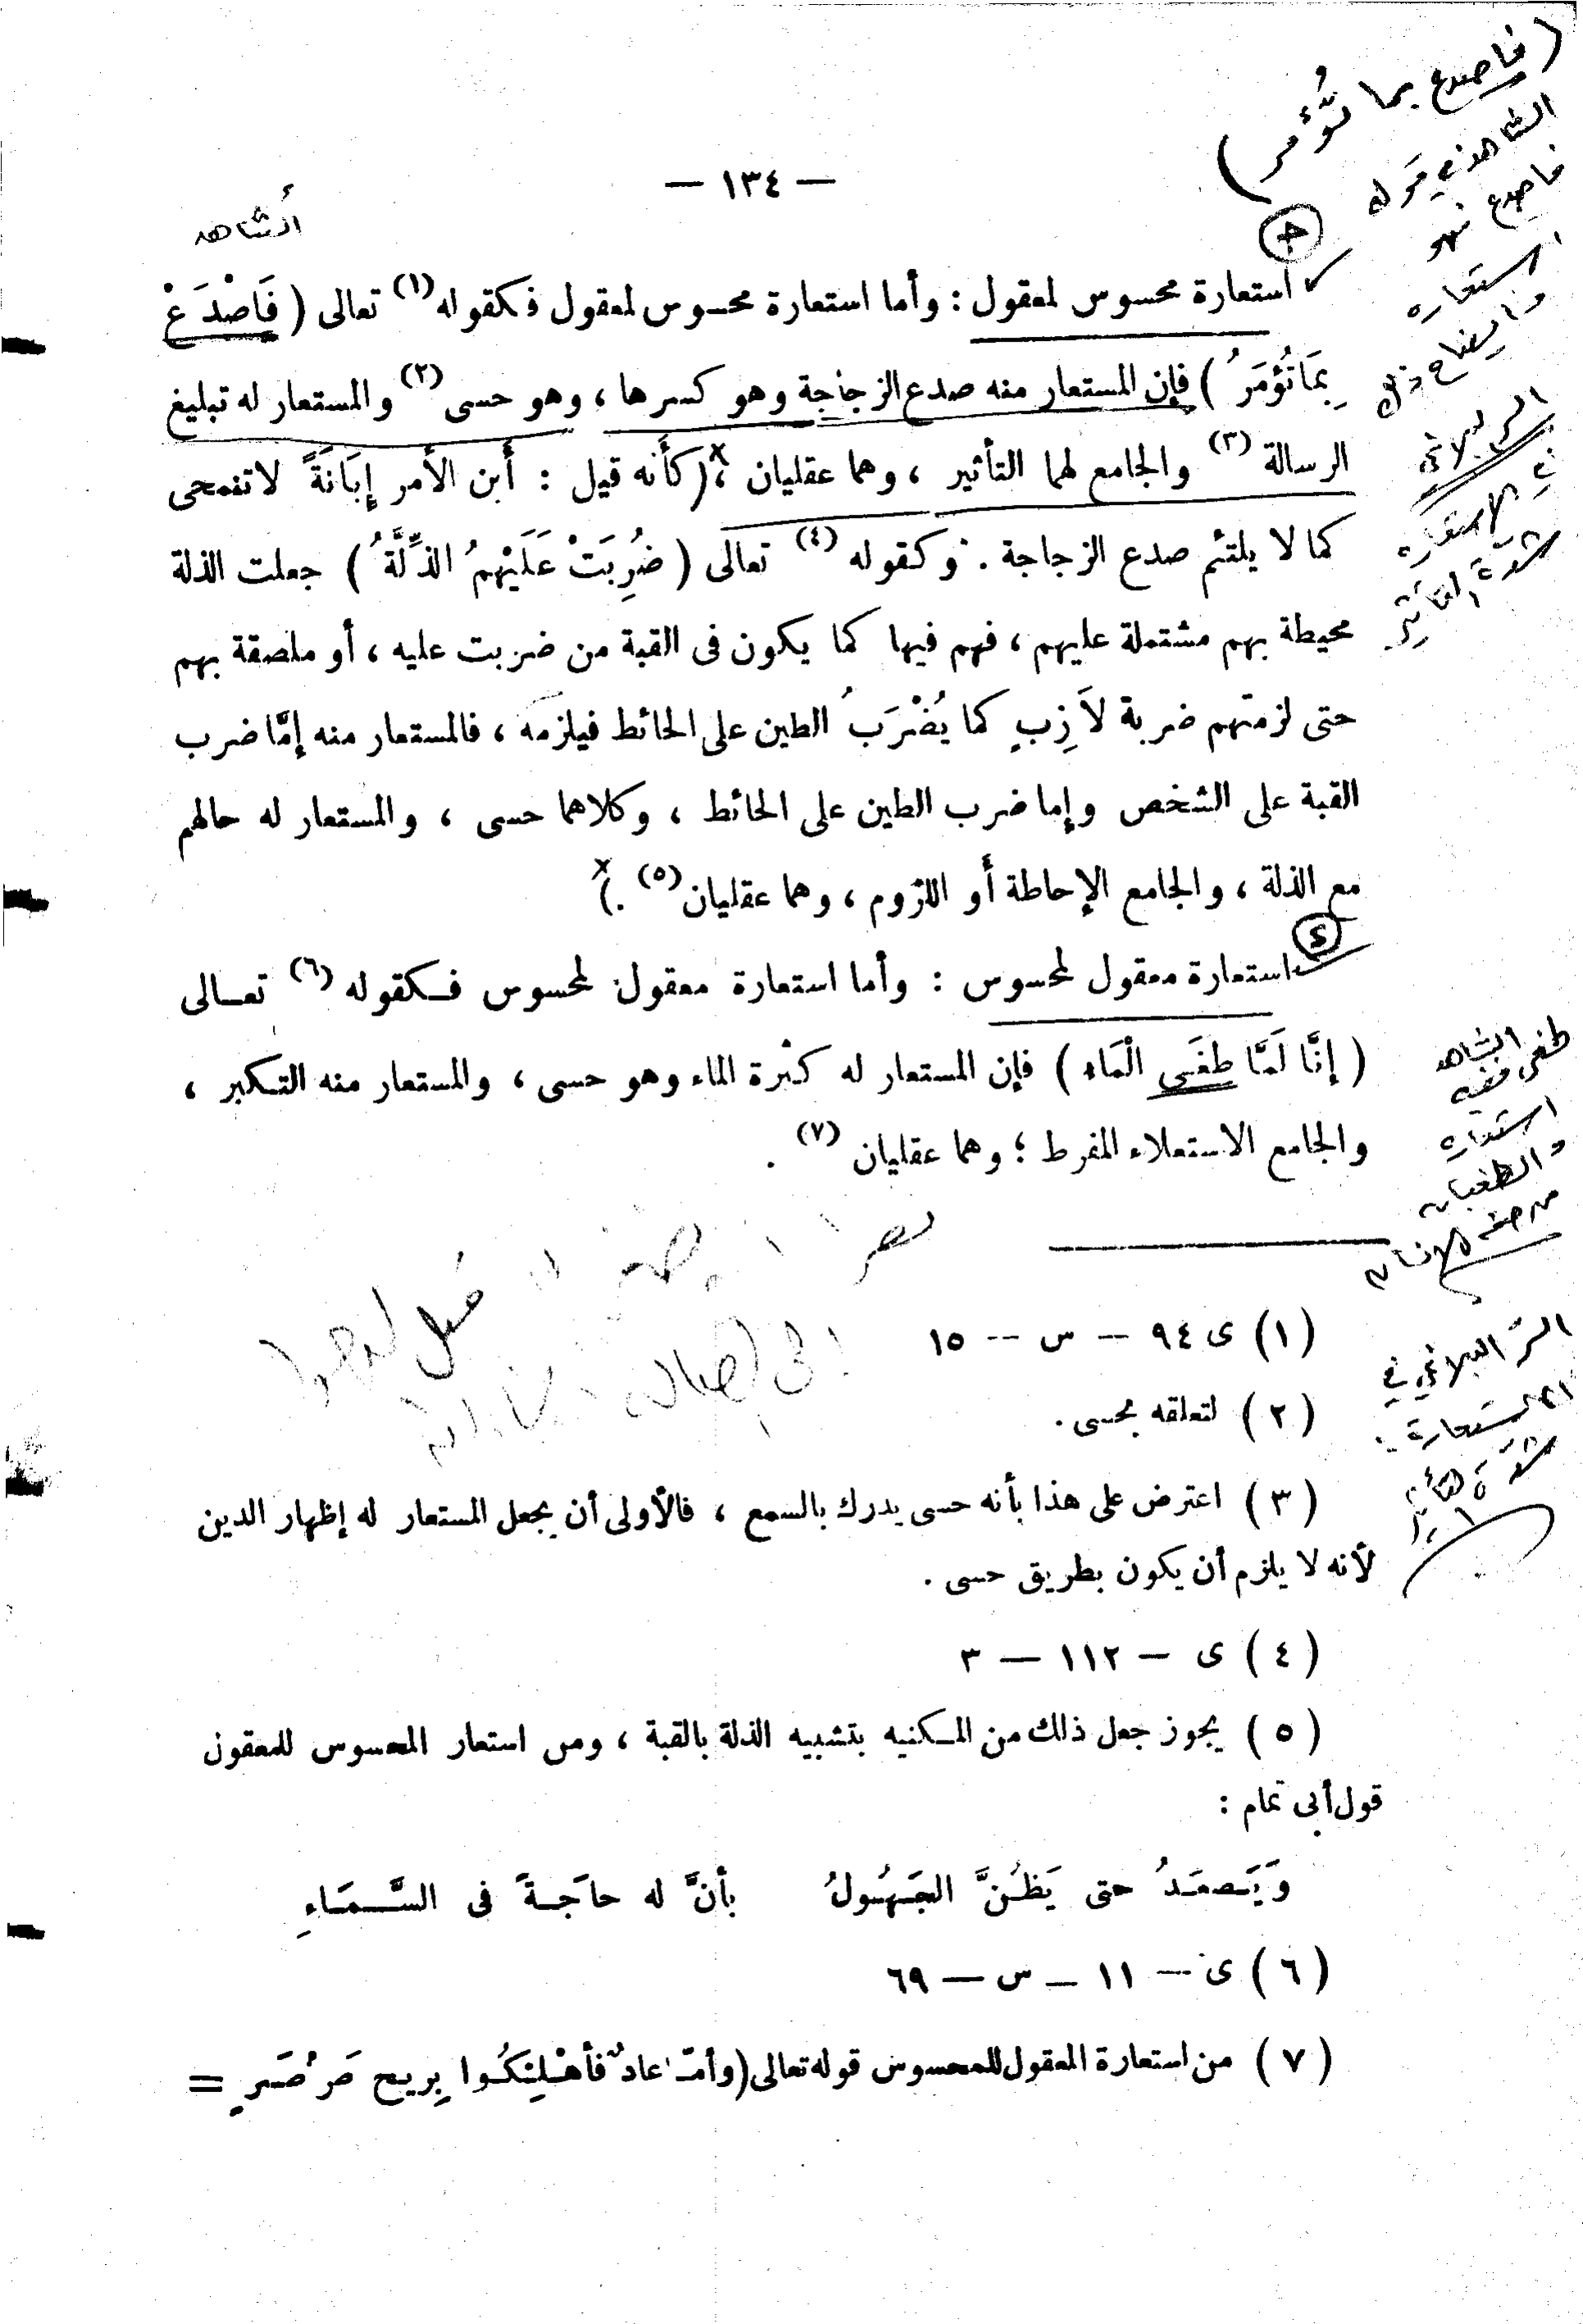 — ١٣٤ —
الشاهد
(فاصدع بما تُؤمر)
الشاهد في قوله
فاصدع فهو
استعارة
السر البلاغي
في الاستعارة
شدة التأثير
استعارة محسوس لمعقول : وأما استعارة محسوس لمعقول فكقوله (١) تعالى ( فَاصْدَعْ
بِمَا تُؤمَرُ ) فإن المستعار منه صدع الزجاجة وهو كسرها ، وهو حسى (٢) والمستعار له تبليغ
الرسالة (٣) والجامع لهما التأثير ، وهما عقليان ، (كأنه قيل : أبن الأمر إبَانَةً لا تنمحى
كما لا يلتئم صدع الزجاجة . وكقوله (٤) تعالى ( ضُرِبَتْ عَلَيْهِمُ الذِّلَّةُ ) جعلت الذلة
محيطة بهم مشتملة عليهم ، فهم فيها كما يكون فى القبة من ضربت عليه ، أو ملصقة بهم
حتى لزمتهم ضربة لاَزِبٍ كما يُضْرَبُ الطين على الحائط فيلزمه ، فالمستعار منه إمَّا ضرب
القبة على الشخص وإما ضرب الطين على الحائط ، وكلاهما حسى ، والمستعار له حالهم
مع الذلة ، والجامع الإحاطة أو اللزوم ، وهما عقليان (٥) .)
٤
استعارة معقول لمحسوس : وأما استعارة معقول لمحسوس فكقوله (٦) تعالى
( إنَّا لَمَّا طغَى الْمَاء ) فإن المستعار له كثرة الماء وهو حسى ، والمستعار منه التكبر ،
والجامع الاستعلاء المفرط ؛ وهما عقليان (٧) .
طغى الشاهد
استعارة
والطغيان
من صفة الإنسان
السر البلاغي في
الاستعارة
شدة التأثير
(١) ى ٩٤ — س -- ١٥
(٢) لتعلقه بحسى .
(٣) اعترض على هذا بأنه حسى يدرك بالسمع ، فالأولى أن يجعل المستعار له إظهار الدين
لأنه لا يلزم أن يكون بطريق حسى .
(٤) ى — ١١٢ — ٣
(٥) يجوز جعل ذلك من المكنيه بتشبيه الذلة بالقبة ، ومن استعار المحسوس للمعقول
قول أبى تمام :
وَيَصعَدُ حتى يَظُنَّ الجَهُولُ بأنَّ له حاَجةً فى السَّماَءِ
(٦) ى — ١١ — س — ٦٩
(٧) من استعارة المعقول للمحسوس قوله تعالى (وأمّا عاد فأهْلِكُوا بِريح صَرْصَرٍ =